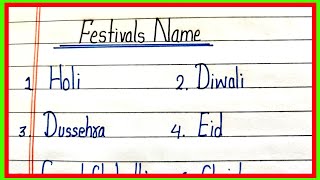 Festivals Name
1 Holi 2. Diwali
3. Dussehra 4. Eid